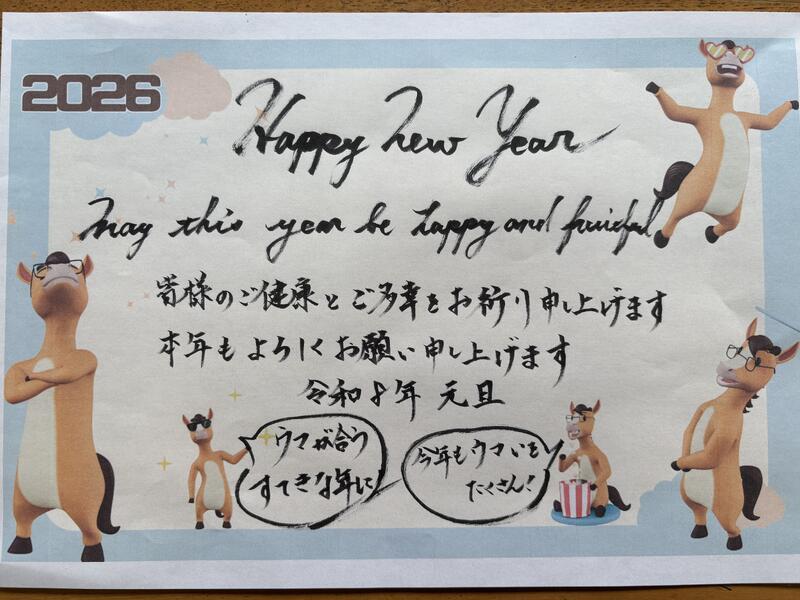 2026
Happy New Year
May this year be happy and fruitful
皆様のご健康とご多幸をお祈り申し上げます
本年もよろしくお願い申し上げます
令和8年 元旦
ウマが合う
すてきな年に!
今年もウマいを
たくさん!